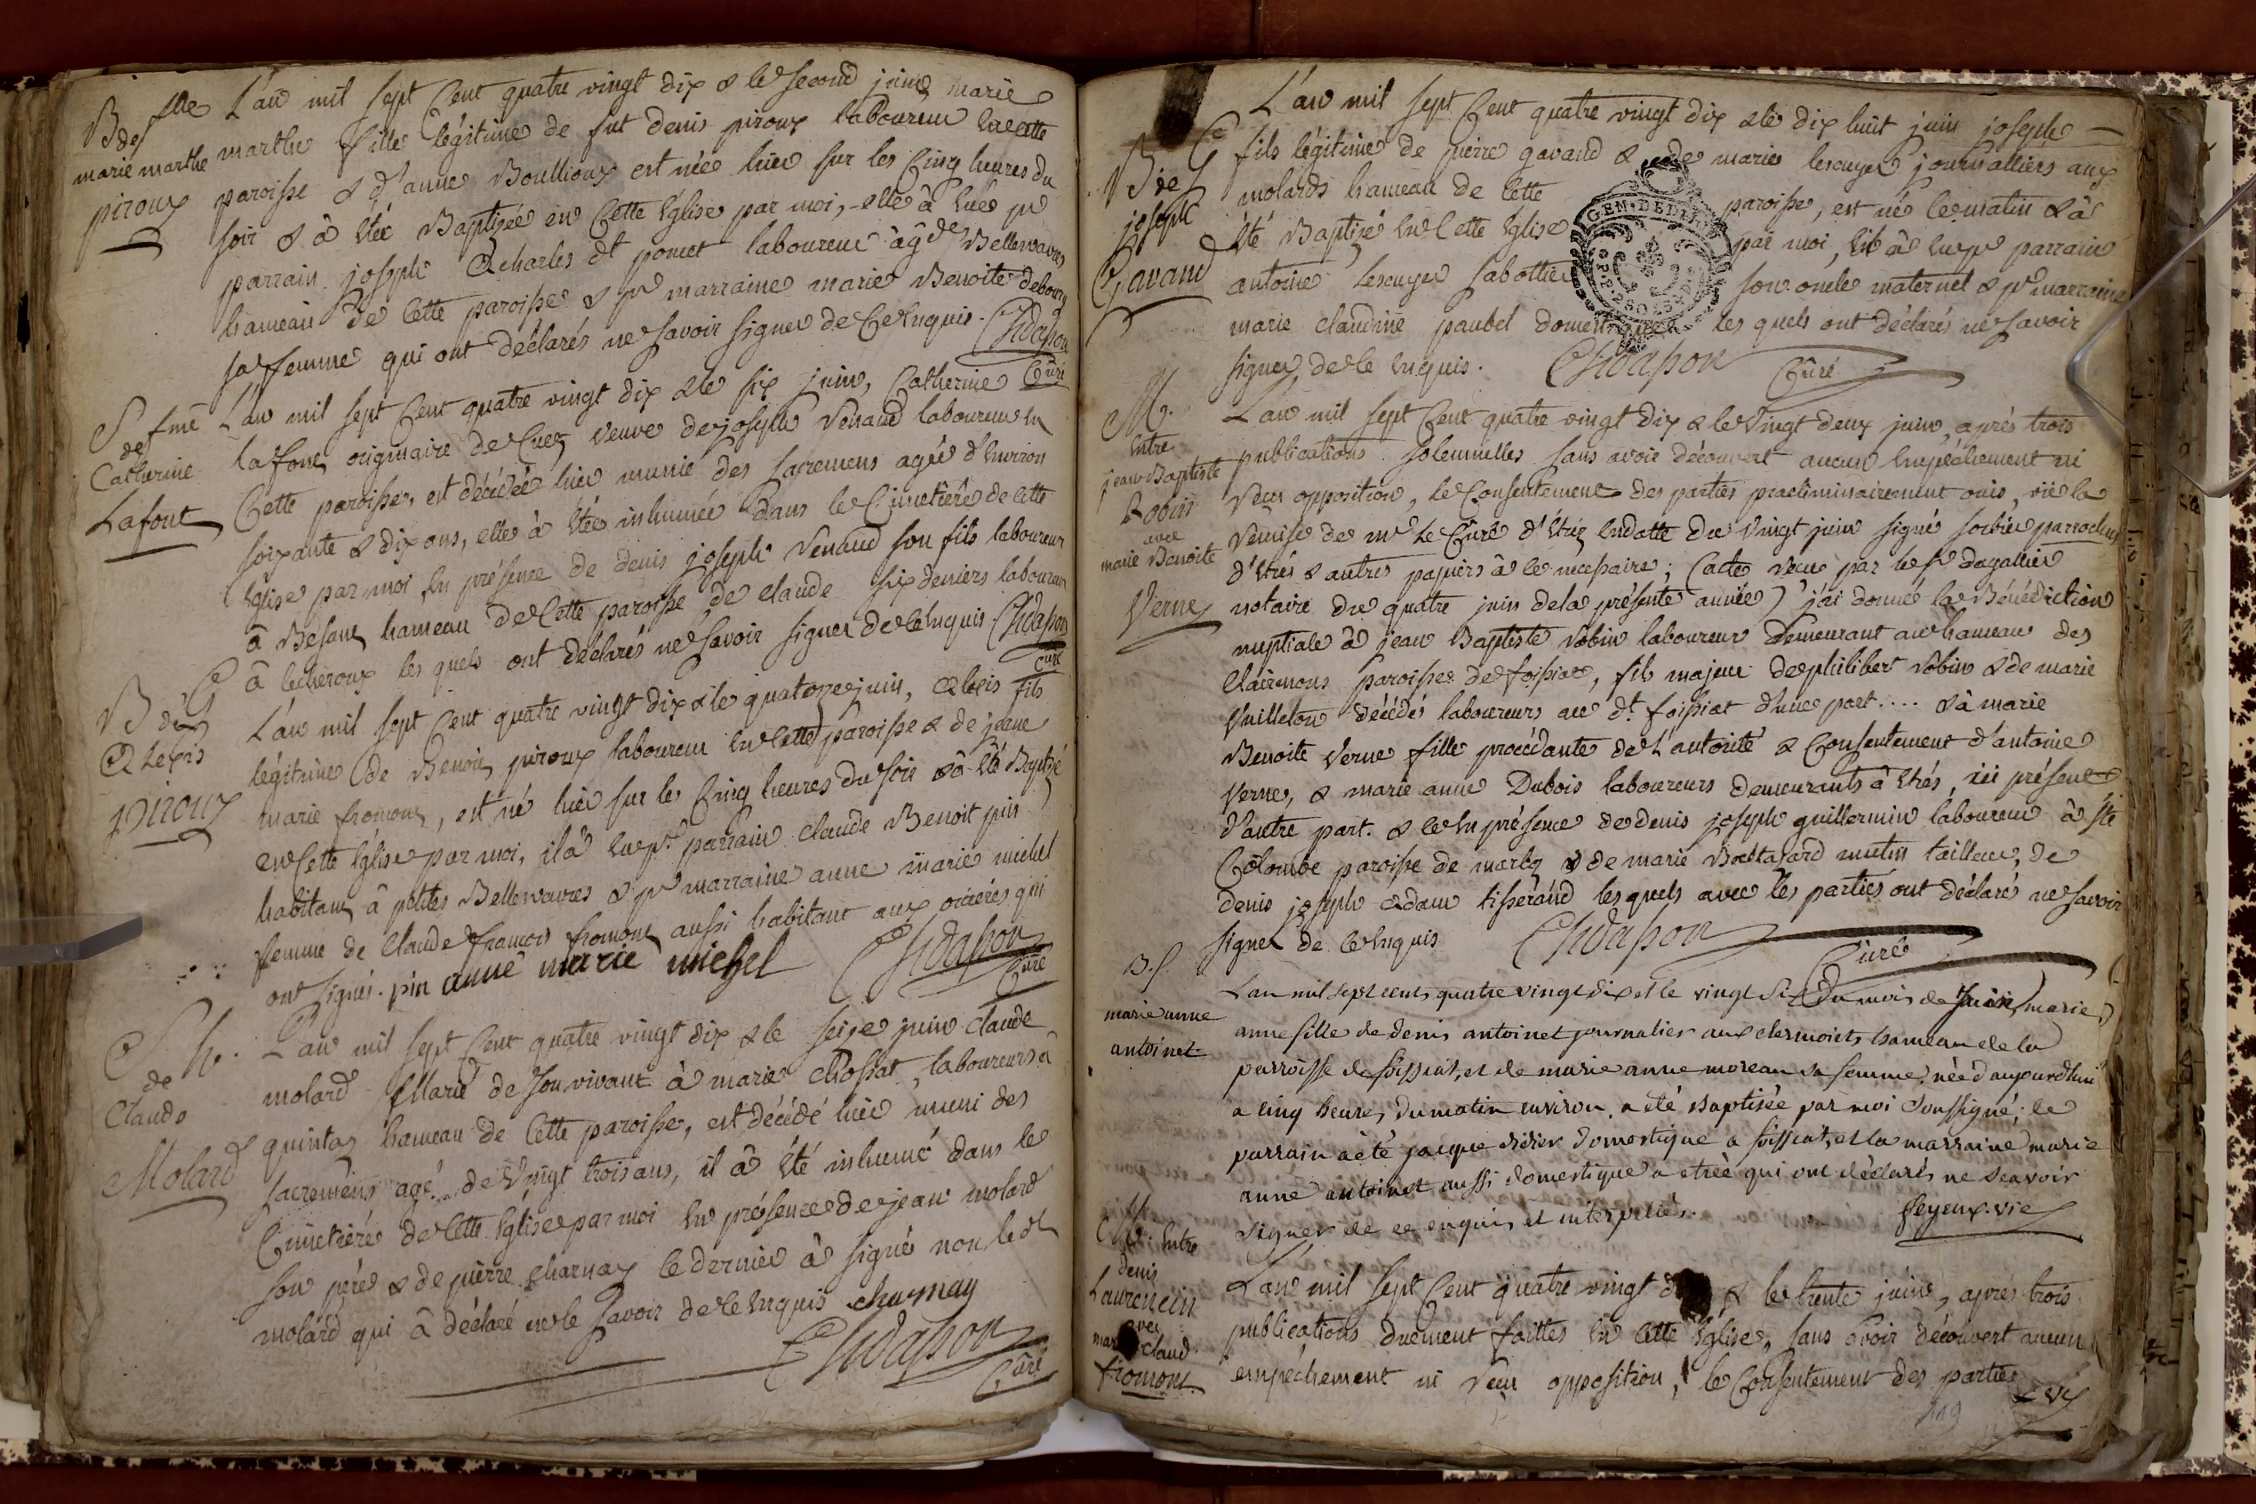 B f.lle
de
marie marthe
piroux
L'an mil sept cent quatre vingt dix & le second juin, marie
marthe fille légitime de fut denis piroux laboureur en cette
paroisse & d'anne Boullioux est née hier sur les cinq heures du
soir & à été Baptisée en cette église par moi, elle à eue pr
parrain joseph charles dt poncet laboureur à gde Bellevavre
hameau de cette paroisse & pr marraine marie Benoite debourg
sa femme qui ont déclarés ne savoir signer de ce enquis. Chidasson
Curé
S fme
de
Catherine
Lafont
L'an mil sept cent quatre vingt dix & le six juin, Catherine
lafont originaire de Cuez veuve de joseph Venaud laboureur en
cette paroisse, est décédée hier munie des sacremens agée d'environ
soixante & dix ans, elle à étée inhumée dans le cimetière de cette
église par moi en présence de denis joseph Venaud son fils laboureur
à Besant hameau de cette paroisse de claude six deniers laboureur
à lecheroux les quels ont déclarés ne savoir signer de ce enquis Chidasson
Curé
B de
Alexis
piroux
L'an mil sept cent quatre vingt dix & le quatorze juin, alexis fils
légitime de Benoit piroux laboureur en cette paroisse & de jeane
marie fromont, est né hier sur le cinq heures du soir & à été Baptisé
en cette église par moi, il à eu pr parrain claude Benoit pin
habitant à petites Bellevavres & pr marraine anne marie michel
femme de claude francois fromont aussi habitant aux oures qui
ont signés. pin anne marie michel Chidasson
Curé
S h.
de
Claude
Molard
L'an mil sept cent quatre vingt dix & le seize juin claude
molard Marié de son vivant à marie chossat, laboureurs à
quintaz hameau de cette paroisse, est décédé hier muni des
sacremens agé de vingt trois ans, il à été inhumé dans le
cimetière de cette église par moi en présence de jean molard
son père & de pierre charnay le dernier à signé non le dt
molard qui à déclaré ne le savoir de ce enquis charnay
Chidasson
Curé
B de G
joseph
Gavand
L'an mil sept cent quatre vingt dix & le dix huit juin joseph
fils légitime de pierre gavand & de marie lescuyer journalliers aux
molards hameau de cette paroisse, est né ce matin & à
été Baptisé en cette église par moi, il à eu pr parrain
antoine lescuyer sabottier son oncle maternel & pr marraine
marie claudine paubel domestique les quels ont déclarés ne savoir
signer de ce enquis. Chidasson Curé
M.
entre
jean Baptiste
Robin
avec
marie Benoite
Verne
L'an mil sept cent quatre vingt dix & le vingt deux juin, après trois
publications solennelles sans avoir découvert aucun empéchement ni
reçu opposition, le consentement des parties praeliminairement ouis, vüe la
remise de mr Le Curé d'étréz en datte du vingt juin signé sorbier parrochus
d'étrés & autres papiers à ce necessaire; (acte reçu par le sr dagallier
notaire du quatre juin de la présente année) j'ai donnée la Bénédiction
nuptiale à jean Baptiste robin laboureur demeurant au hameau des
clairmons paroisse de foissiat, fils majeur de philibert robin & de marie
Vuilleton décédés laboureurs au dt foissiat d'une part.... & à marie
Benoite Verne fille procédante de l'autorité & consentement d'antoine
Verne, & marie anne Dubois laboureurs demeurants à étrés, ici présente
d'autre part. & ce en présence de denis joseph guillermin laboureur à ste
Colombe paroisse de marboz & de marie mutin tailleur, de
denis joseph adam tisserand les quels avec les parties ont déclarés ne savoir
signer de ce enquis Chidasson Curé
B. f.
marie anne
antoinet
L'an mil sept cents quatre vingt dix et le vingt six du mois de juin, marie
anne fille de denis antoinet journalier aux clermoints hameau de la
parroisse de foissiat, et de marie anne moreau sa femme, née d'aujourdhui
a cinq heures du matin environ, a été Baptisée par moi soussigné; le
parrain a été jacque didier domestique a foissiat, et la marraine marie
anne antoinet aussi domestique a etréé qui ont déclarés ne scavoir
signer de ce enquis et interpellés. feyeux. vic
M. entre
denis
Laurencin
avec
marie claud.
fromont
L'an mil sept cent quatre vingt dix & le trente juin, après trois
publications duement faittes en cette église, sans avoir découvert aucun
empéchement ni reçu opposition, le consentement des parties
119